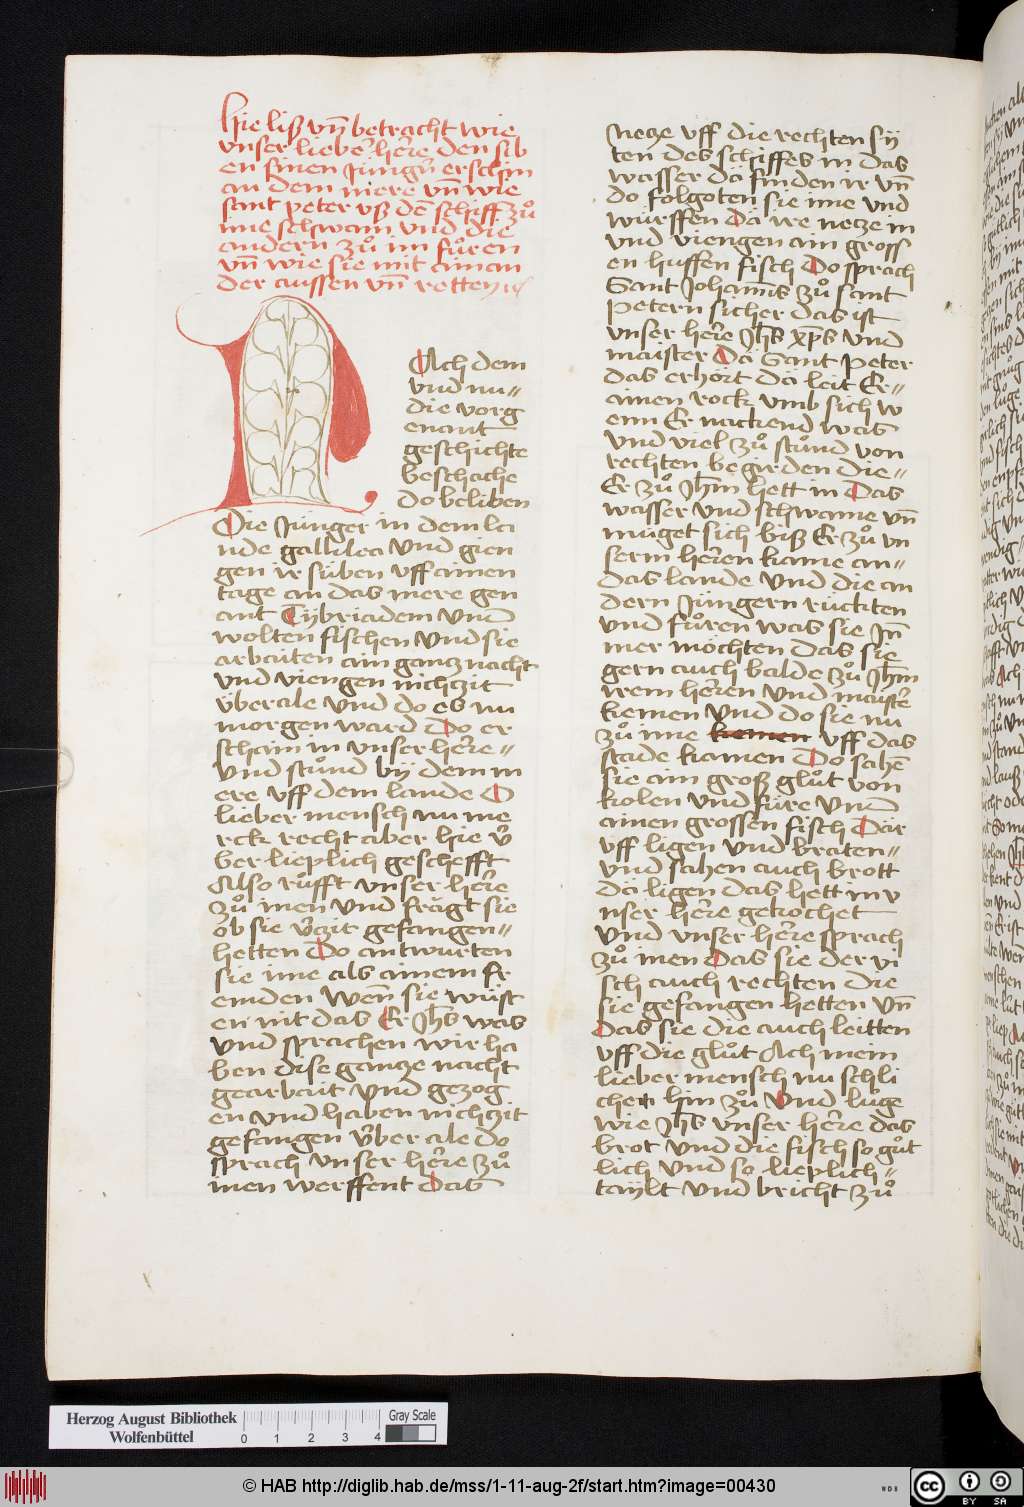 Hie liß vn̄ betracht wie
vnser lieber here den sib
en sinen Jüngn̄ erschin
an dem mere vn̄ wie
sant peter vß dē schiff zů
ime schwam vnd die
andern zů im fůren
vn̄ wie sie mit ainan
der aussen vn̄ retten
NAch dem
vnd nu=
die vorg
enant
geschichte
beschache
do beliben
Die Jünger in dem la
nde gallilea vnd gien
gen ir süben vff ainen
tage an das mere gen
ant Tÿbriadem vnd
wolten fischen vnd sie
arbaiten ain ganz nacht
vnd viengen nichzit
v̈berale vnd do es nu
morgen ward Do er
schain in vnser here=
vnd stůnd bÿ dem m
ere vff dem lande O
lieber mensch nu me
rck recht aber hie v̈
ber lieplich geschefft
Also růfft vnser here
zů inen vnd frägt sie
ob sie v̈zit gefangen=
hetten Do antwurten
sie ime als ainem fr
emden Wen̄ sie wüst
en nit das Er Jhs̄ was
vnd sprachen wir ha
ben dise gancze nacht
gearbait vnd gezog
en vnd haben nichzit
gefangen v̈ber ale do
sprach vnser here zů
inen werffent das
netze vff die rechten sÿ
ten des schiffes in das
wasser dä finden ir vn̄
do folgoten sie ime vnd
würffen Dä ire netze in
vnd viengen ain gross
en huffen fisch Do sprach
Sant Johann̄s zů sant
Petern sicher das ist
vnser here Jhs̄ xp̄s vnd
maister Dä Sant Peter
das erhört dä leit Er=
ainen rock vmb sich w
enn Er nackend was
vnd viel zů stůnd von
rechten begirden die=
Er zů Jhm̄ hett in Das
wasser vnd schwame vn̄
müget sich biß Er zů vn
serm heren kame an=
das lande vnd die an
dern Jüngern rückten
vnd fůren was sie Jn̄
mer möchten das sie
gern auch balde zů Jhm̄
irem heren vnd maister
kemen vnd do sie nu
zů ime kemen vff das
stade kamen Do sahē
sie ain groß glůt von
kolen vnd füre vnd
ainen grossen fisch Dar
vff ligen vnd braten=
vnd sahen auch brott
dä ligen das hett in v
nser here gekochet
vnd vnser here sprach
zů inen Das sie der vi
sch auch rechten die
sie gefangen hetten vn̄
Das sie die auch leitten
vff die glůt Ach mein
lieber mensch nu schli
che hin zů vnd lůge
wie Jhs̄ vnser here das
brot vnd die fisch so gůt
lich vnd so lieplich=
taÿlt vnd bricht zů
Herzog August Bibliothek
Wolfenbüttel
0 1 2 3 4
Gray Scale
© HAB http://diglib.hab.de/mss/1-11-aug-2f/start.htm?image=00430
WDB
cc BY SA